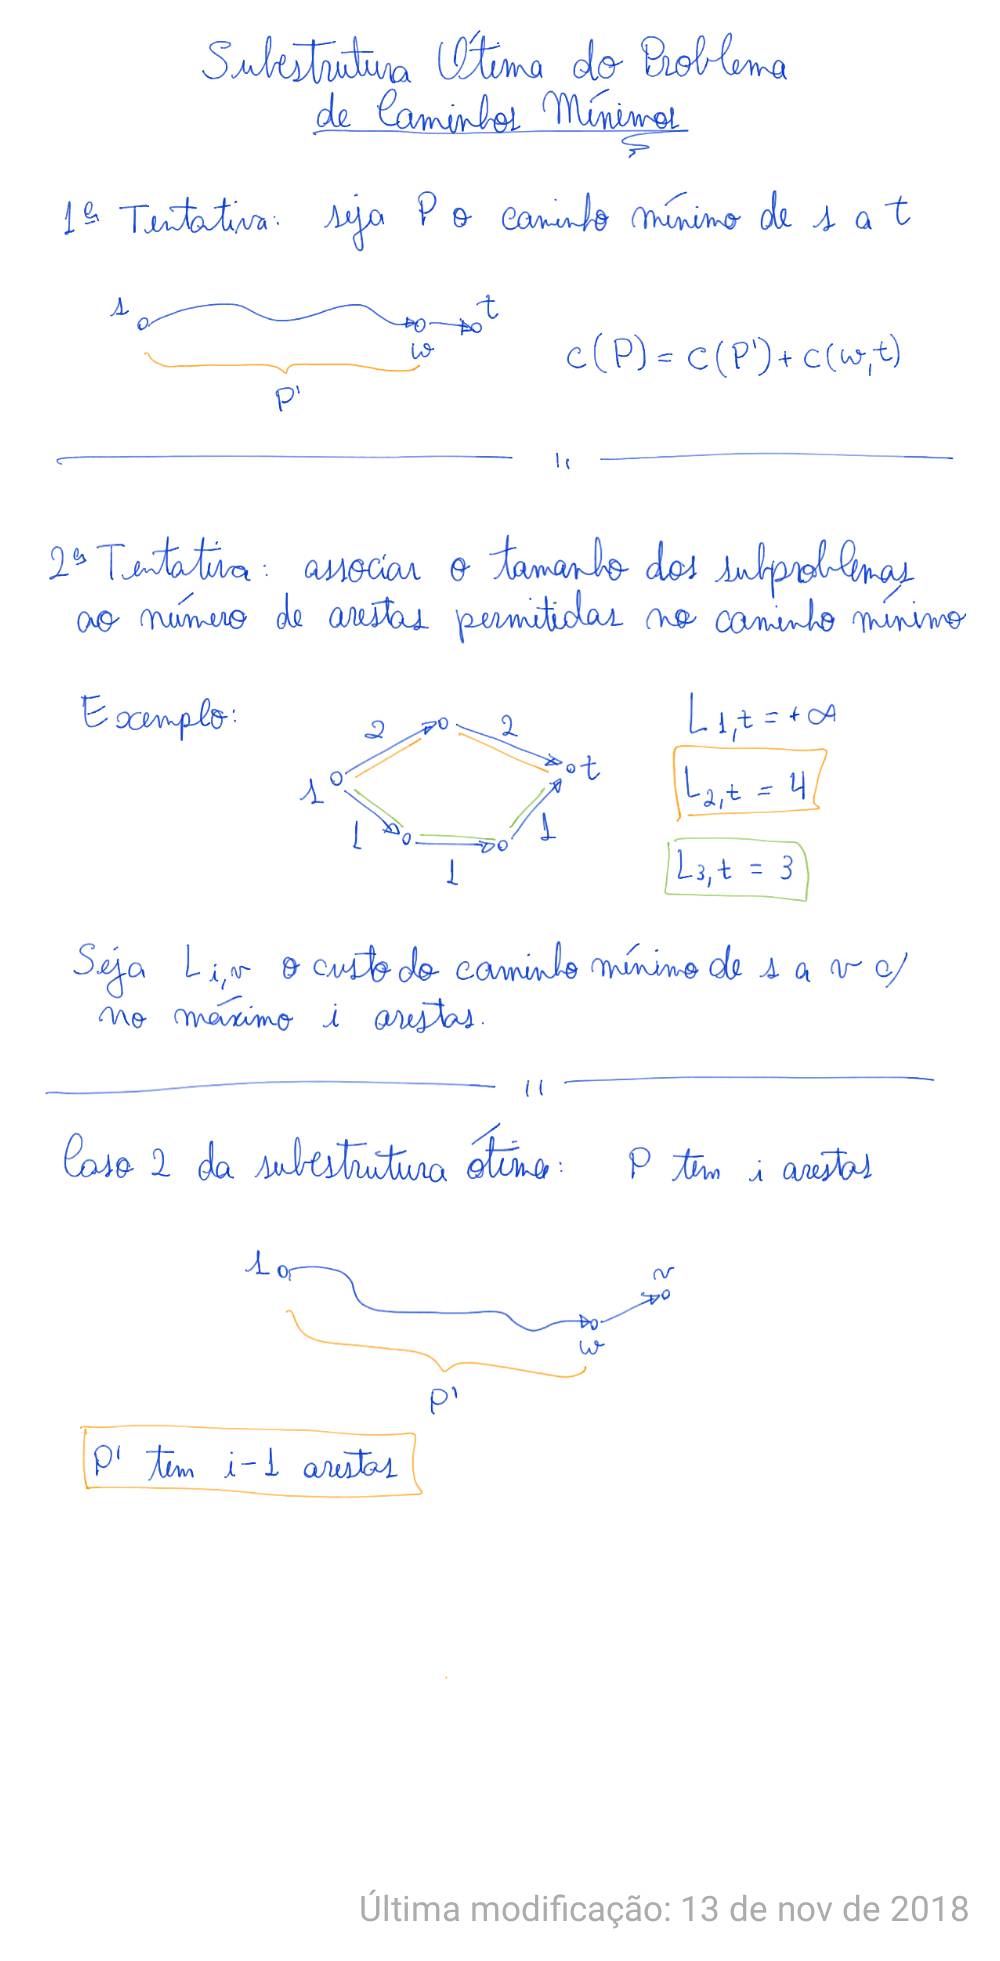 Subestrutura Ótima do Problema
de Caminhos Mínimos
1ª Tentativa: seja P o caminho mínimo de s a t
s t
w
P'
c(P) = c(P') + c(w,t)
2ª Tentativa: associar o tamanho dos subproblemas
ao número de arestas permitidas no caminho mínimo
Exemplo:
2 2
s t
1 1
1
L1,t = +∞
L2,t = 4
L3,t = 3
Seja Li,v o custo do caminho mínimo de s a v c/
no máximo i arestas.
Caso 2 da subestrutura ótima: P tem i arestas
s v
w
P'
P' tem i-1 arestas
Última modificação: 13 de nov de 2018